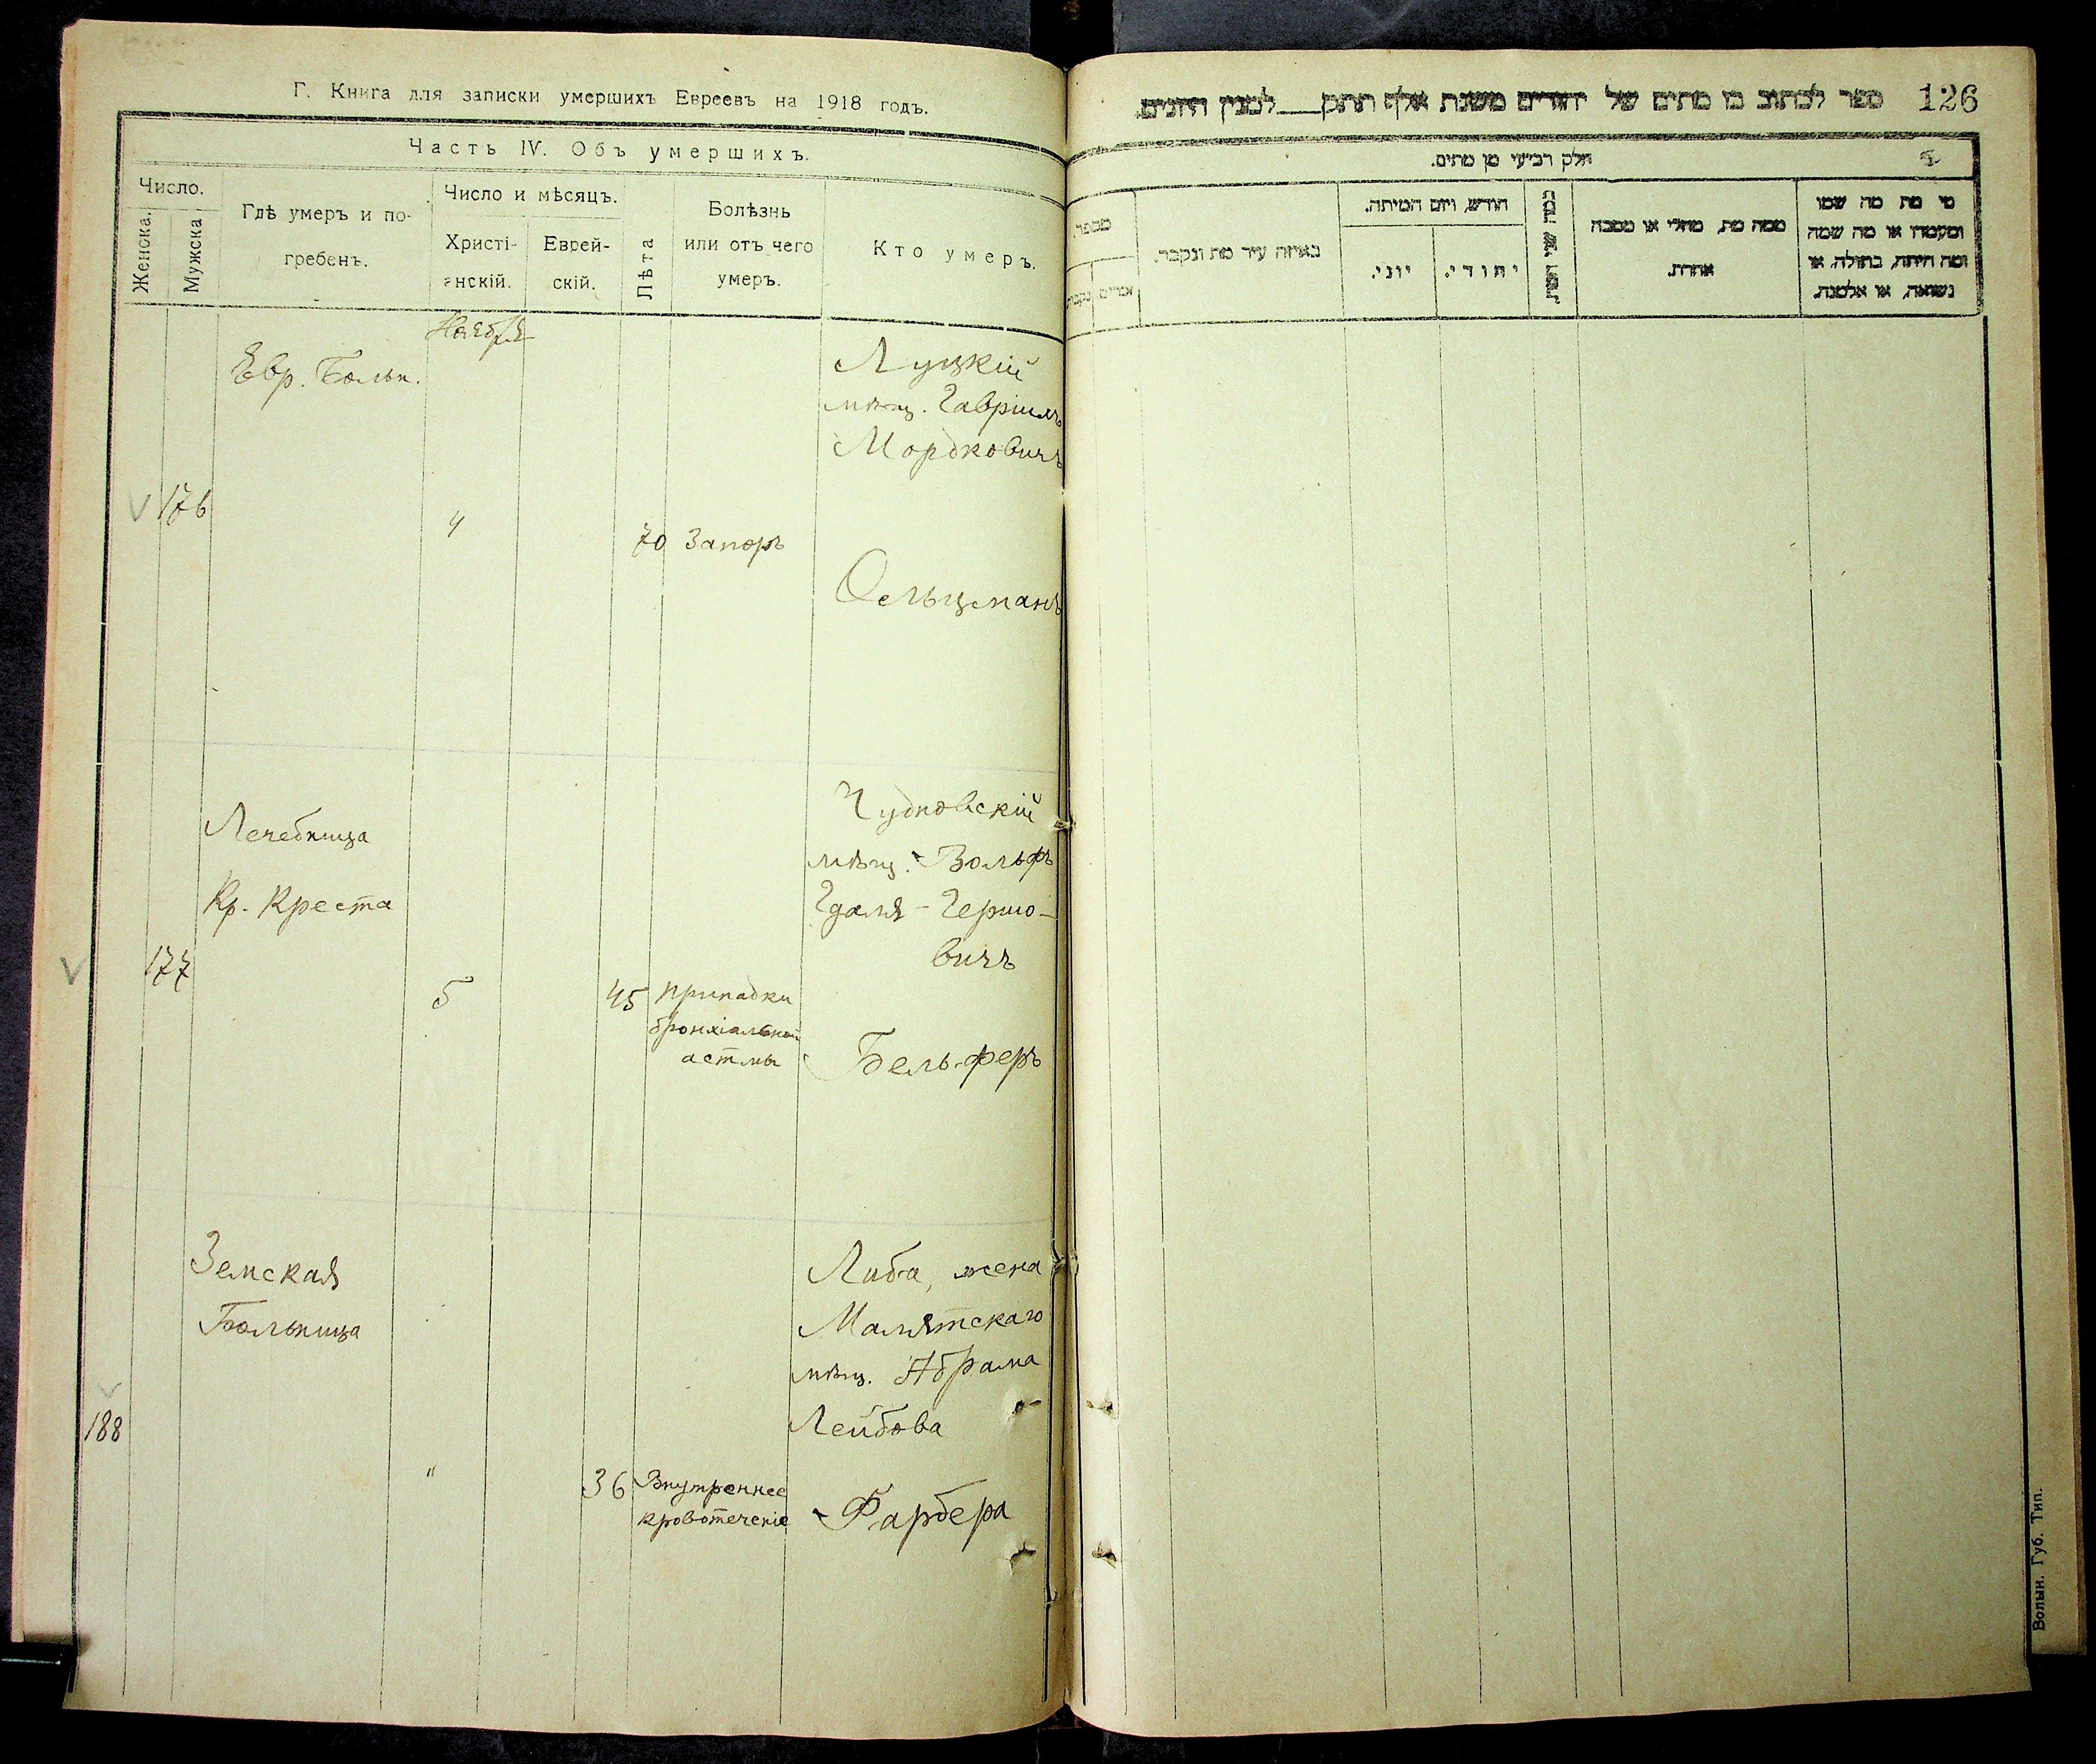 Г. Книга для записки умершихъ Евреевъ на 1918 годъ.
Часть IV. Объ умершихъ.
Число.
Женска.
Мужска
Гдѣ умеръ и по-
гребенъ.
Число и мѣсяцъ.
Христі-
анскій.
Еврей-
скій.
Лѣта
Болѣзнь
или отъ чего
умеръ.
Кто умеръ.
Ноября
Евр. Больн.
176
4
70
Запоръ
Луцкій
мѣщ. Гавріилъ
Мордковичъ
Сельцманъ
Лечебница
Кр. Креста
177
5
45
припадки
бронхіальной
астмы
Чудновскій
мѣщ. Вольфъ
Гдаля-Гершо-
вичъ
Бельферъ
Земская
Больница
188
"
36
Внутреннее
кровотеченіе
Либа, жена
Малятскаго
мѣщ. Абрама
Лейбова
Фарбера
ספר לכתוב בו מתים של יהודים משנת אלף תתק___למנין היונים.
126
חלק רביעי מן מתים.
מספר.
זכרים
נקבות
באיזה עיר מת ונקבר.
חודש, ויום המיתה.
יוני.
יהודי.
ממה מת, מחלי או מסבה
אחרת.
מי מת מה שמו
ומעמדו או מה שמה
ומה היתה, בתולה, או
נשואה, או אלמנה.
Волын. Губ. Тип.